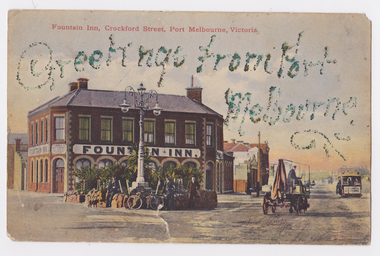 Fountain Inn, Crockford Street, Port Melbourne, Victoria.
Greetings from Port
Melbourne
FOUNTAIN INN.